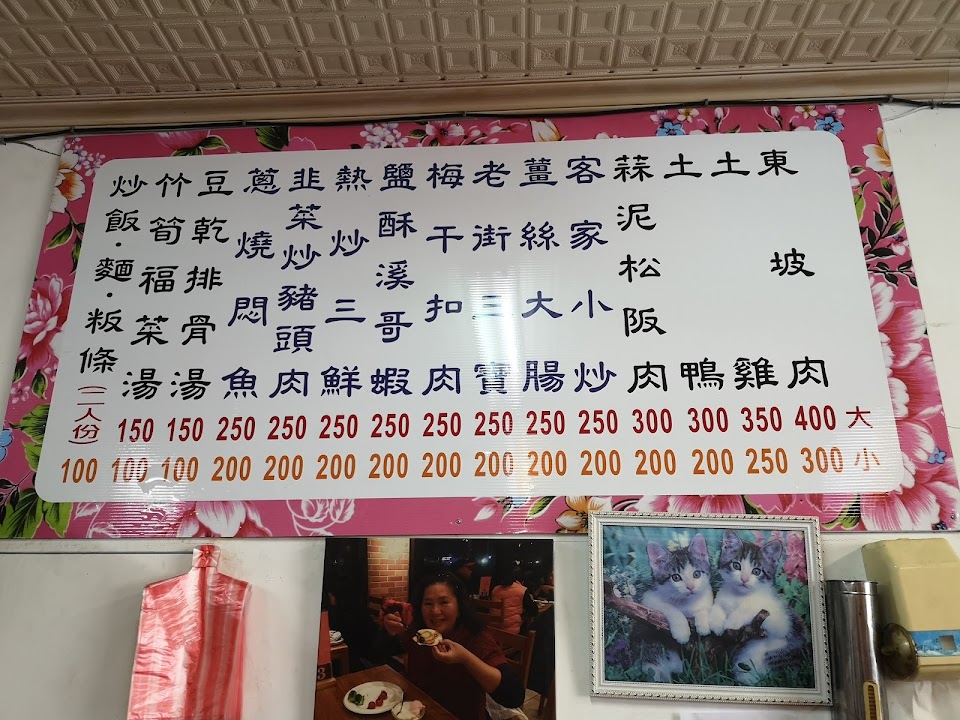 東坡肉
土雞
土鴨
蒜泥松阪肉
客家小炒
薑絲大腸
老街三寶
梅干扣肉
鹽酥溪哥蝦
熱炒三鮮
韭菜炒豬頭肉
蔥燒悶魚
豆乾排骨湯
竹筍福菜湯
炒飯·麵·粄條(二人份)
150 150 250 250 250 250 250 250 250 250 300 300 350 400 大
100 100 100 200 200 200 200 200 200 200 200 200 200 250 300 小